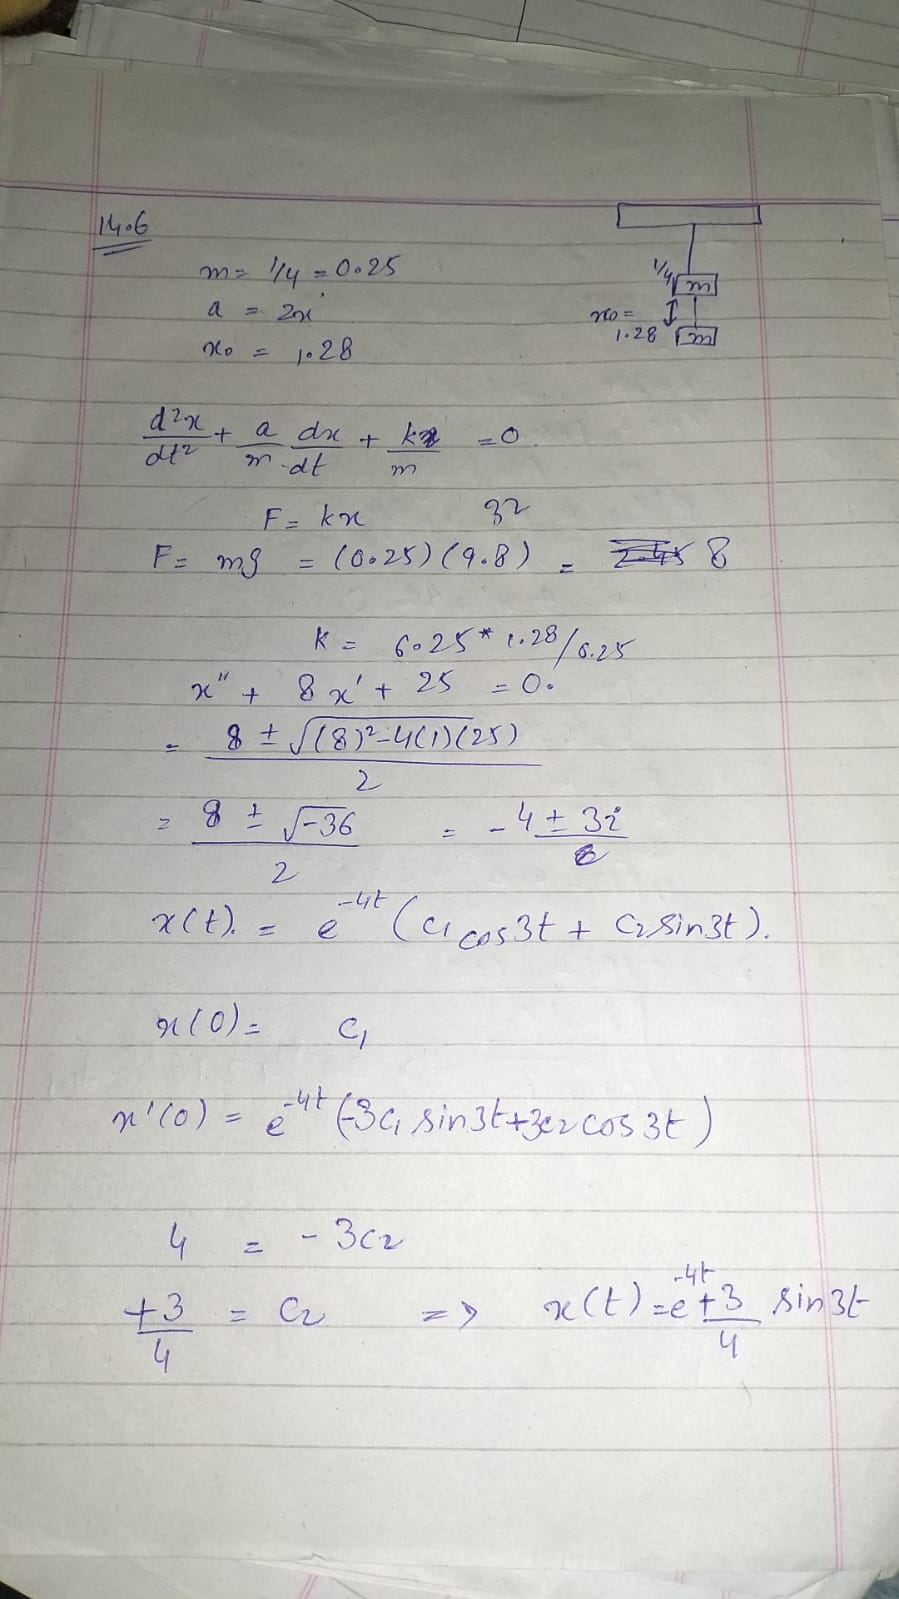 14.6
m = 1/4 = 0.25
a = 2x
x0 = 1.28
1/4 m
x0 = 1.28 m
d²x/dt² + a/m dx/dt + kx/m = 0.
F = kx 32
F = mg = (0.25)(9.8) = 8
k = 6.25 * 1.28/6.25
x'' + 8x' + 25 = 0.
= 8 ± √(8)²-4(1)(25) / 2
= 8 ± √-36 / 2 = -4 ± 3i
x(t). = e^-4t (c1 cos3t + c2 sin3t).
x(0) = c1
x'(0) = e^-4t (-3c1 sin3t+3c2 cos3t)
4 = -3c2
+3/4 = c2 => x(t) = e^-4t +3/4 sin3t